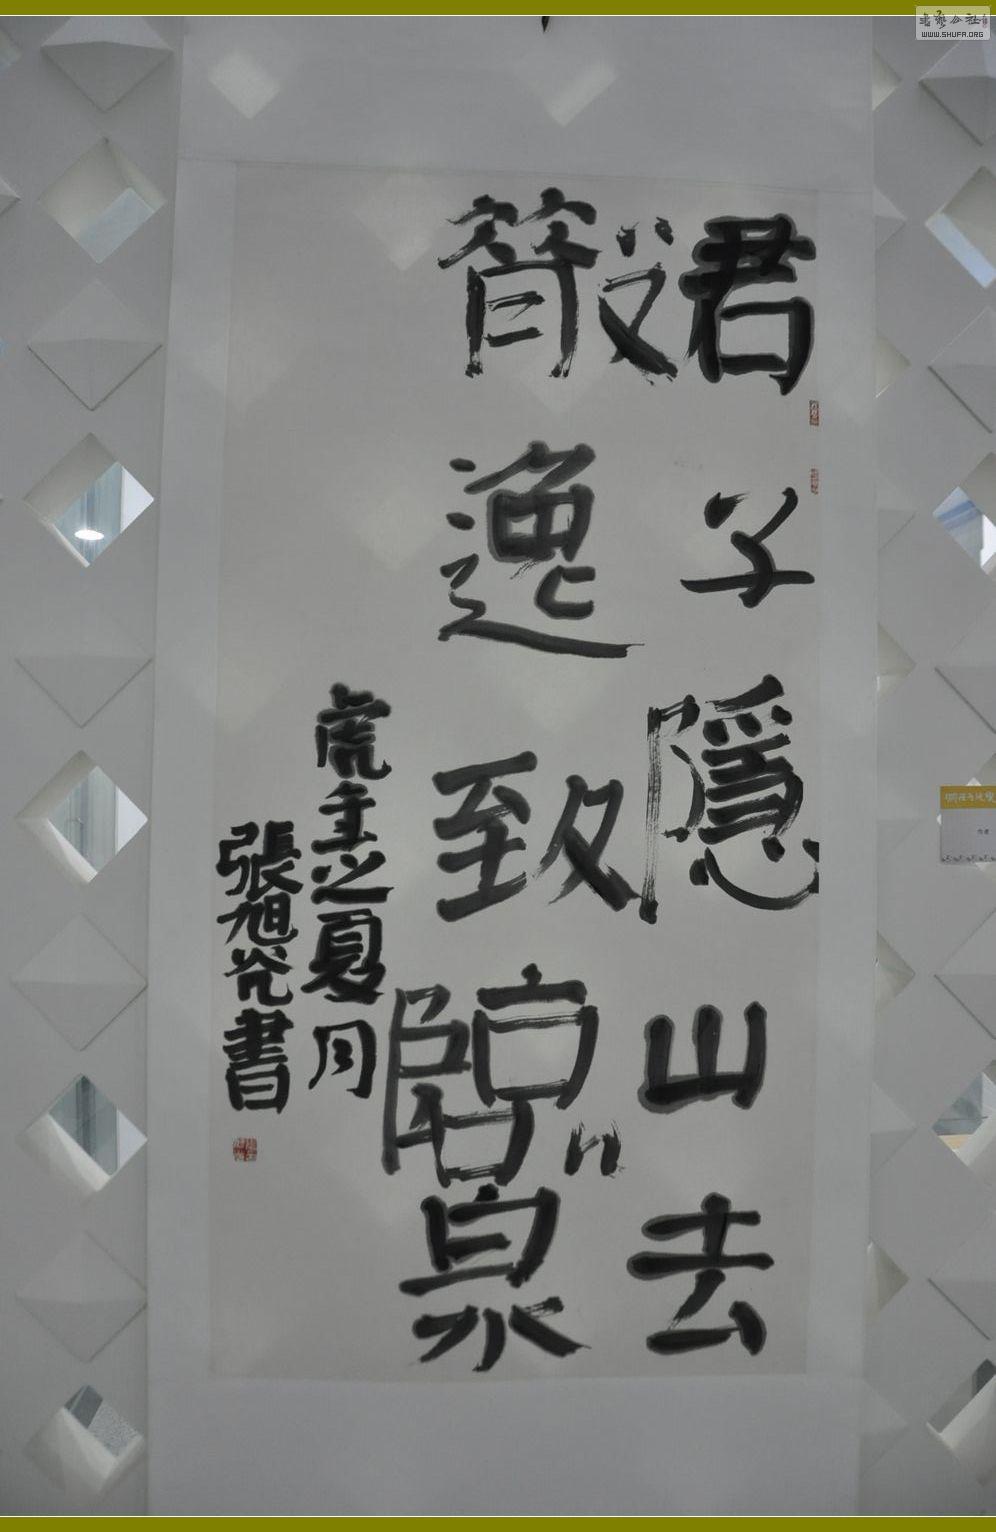 君子隱山去
散逸致臨泉
虎年之夏月
張旭光書
書藝公社
WWW.SHUFA.ORG